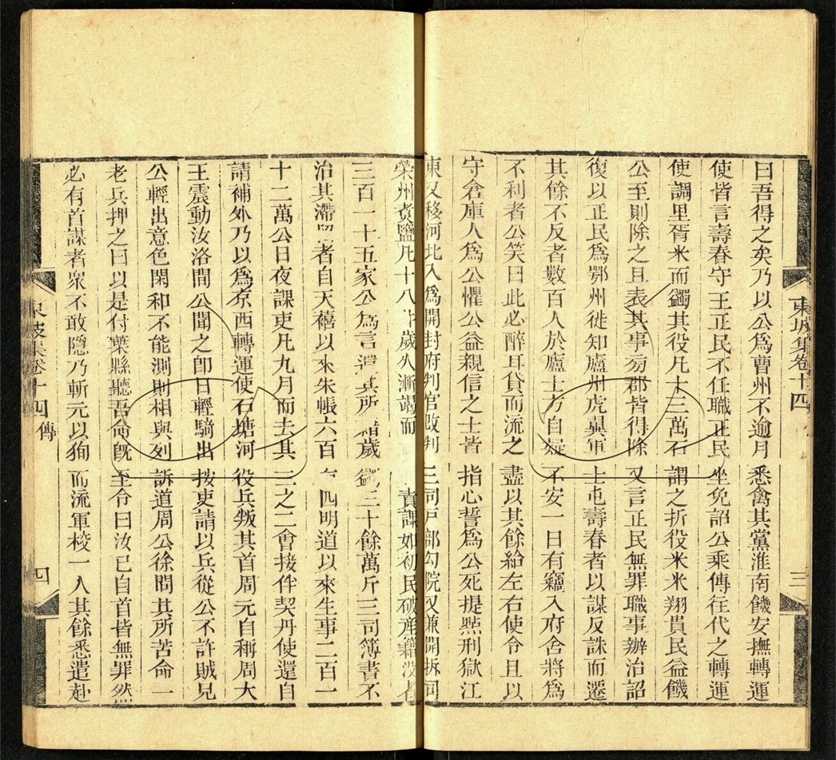 曰吾得之矣乃以公爲曹州不逾月悉禽其黨淮南饑安撫轉運
使皆言壽春守王正民不任職正民坐免詔公乘傳往代之轉運
使調里胥米而蠲其役凡十三萬石謂之折役米米翔貴民益饑
公至則除之且表其事旁郡皆得除又言正民無罪職事辦治詔
復以正民爲鄂州徙知廬州虎翼軍士屯壽春者以謀反誅而遷
其餘不反者數百人於廬士方自疑不安一日有竊入府舍將爲
不利者公笑曰此必醉耳貸而流之盡以其餘給左右使令且以
守倉庫人爲公懼公益親信之士皆指心誓爲公死提㸃刑獄江
東又移河北入爲開封府判官改判三司戶部勾院又兼開拆司
東坡集卷十四 三
榮州煑鹽凡十八井歲久澹竭而責課如初民破產籍沒者
三百一十五家公爲言還其所籍歲蠲三十餘萬斤三司簿書不
治其滯留者自天禧以來朱帳六百有四明道以來生事二百一
十二萬公日夜課吏凡九月而去其三之二會接伴契丹使還自
請補外乃以爲京西轉運使石塘河役兵叛其首周元自稱周大
王震動汝洛間公聞之卽日輕騎出按吏請以兵從公不許賊見
公輕出意色閑和不能測則相與列訴道周公徐問其所苦命一
老兵押之曰以是付葉縣聽吾命既至令曰汝已自首皆無罪然
必有首謀者衆不敢隱乃斬元以狥而流軍校一人其餘悉遣赴
東坡集卷十四 傳 四